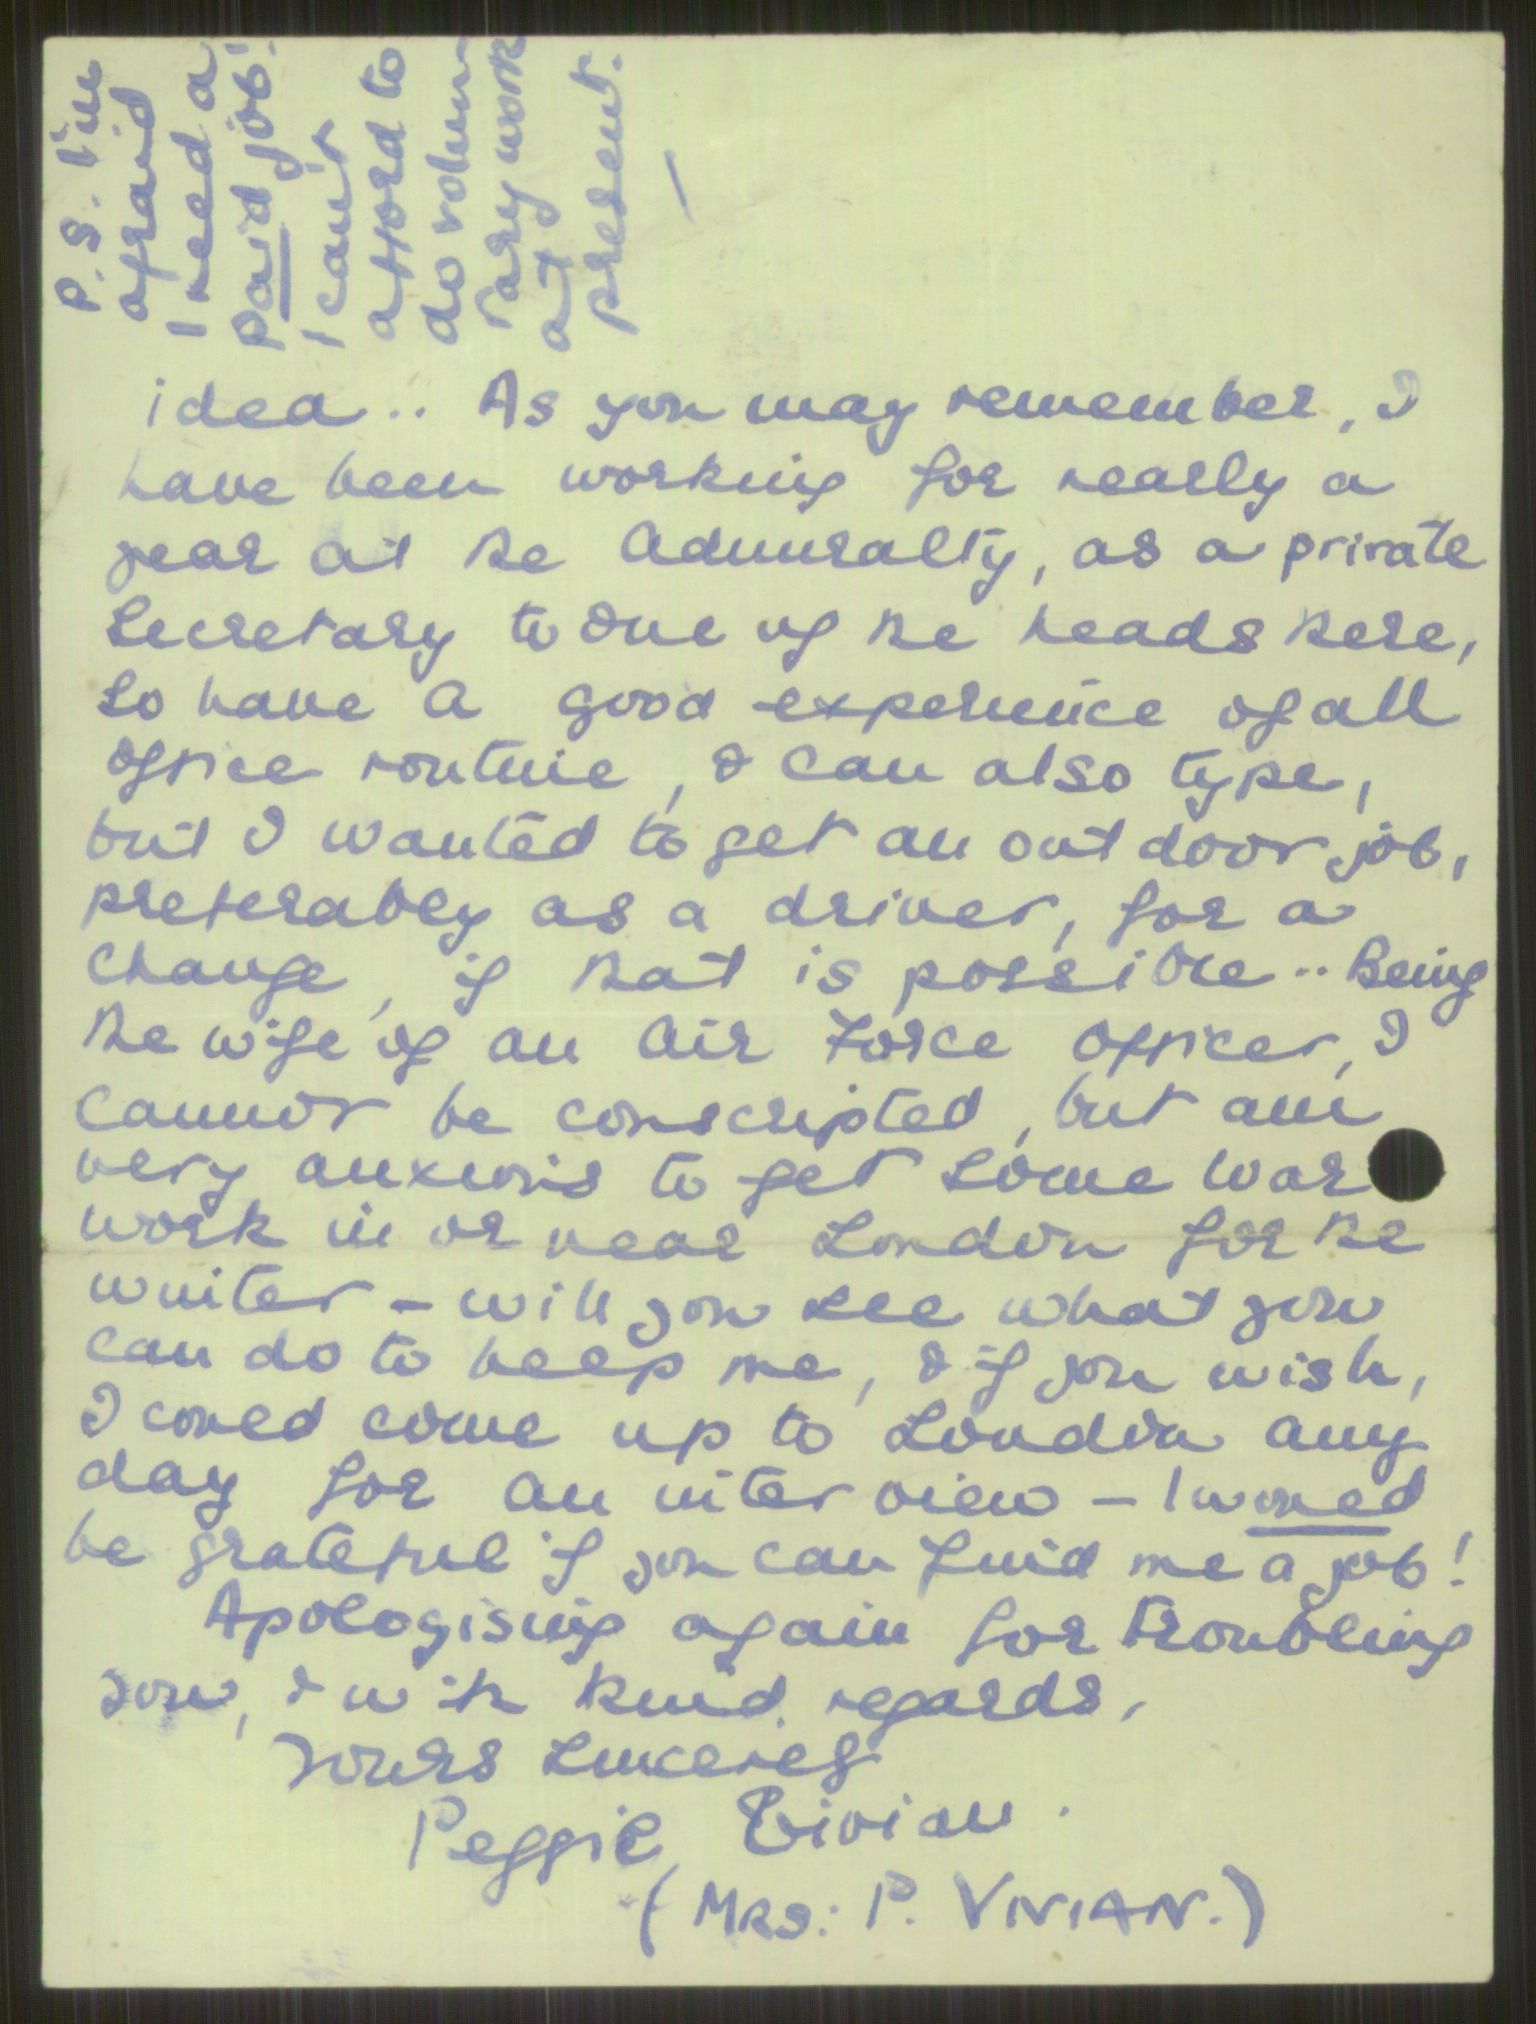 P.S. I'm
afraid
I need a
paid job!
I can't
afford to
do volun-
tary work
at
present.
idea.. As you may remember, I
have been working for nearly a
year at the Admiralty, as a private
Secretary to one of the heads there,
so have a good experience of all
office routine, & can also type,
but I wanted to get an outdoor job,
preferably as a driver, for a
change, if that is possible.. Being
the wife of an Air Force officer, I
cannot be conscripted, but am
very anxious to get some war
work in or near London for the
winter - will you see what you
can do to help me, & if you wish,
I could come up to London any
day for an interview - I would
be grateful if you can find me a job!
Apologising again for troubling
you, & with kind regards,
Yours Sincerely
Peggie Vivian.
(MRS: P. VIVIAN.)